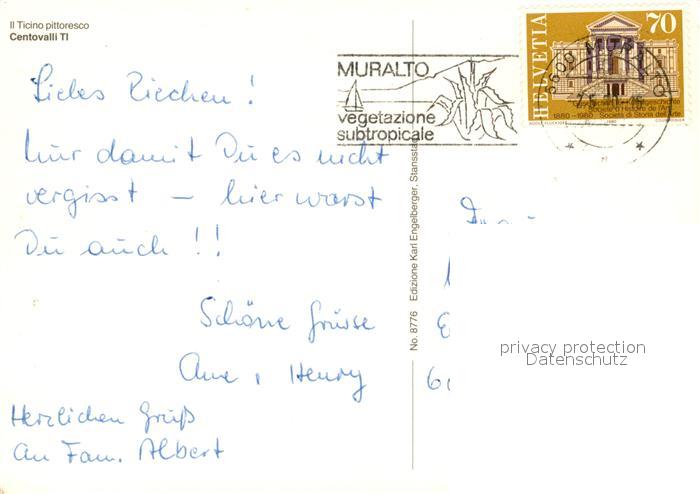 Il Ticino pittoresco
Centovalli TI
Liebes Riechen!
Nur damit Du es nicht
vergisst – hier warst
Du auch!!
Schöne Grüsse
Henry
Herzlichen Gruß
an Fam. Albert
No. 8776 Edizione Karl Engelberger, Stansstad
MURALTO
vegetazione
subtropicale
HELVETIA
70
1880–1980 Società di Storia dell'Arte
6600 MURALTO
privacy protection
Datenschutz